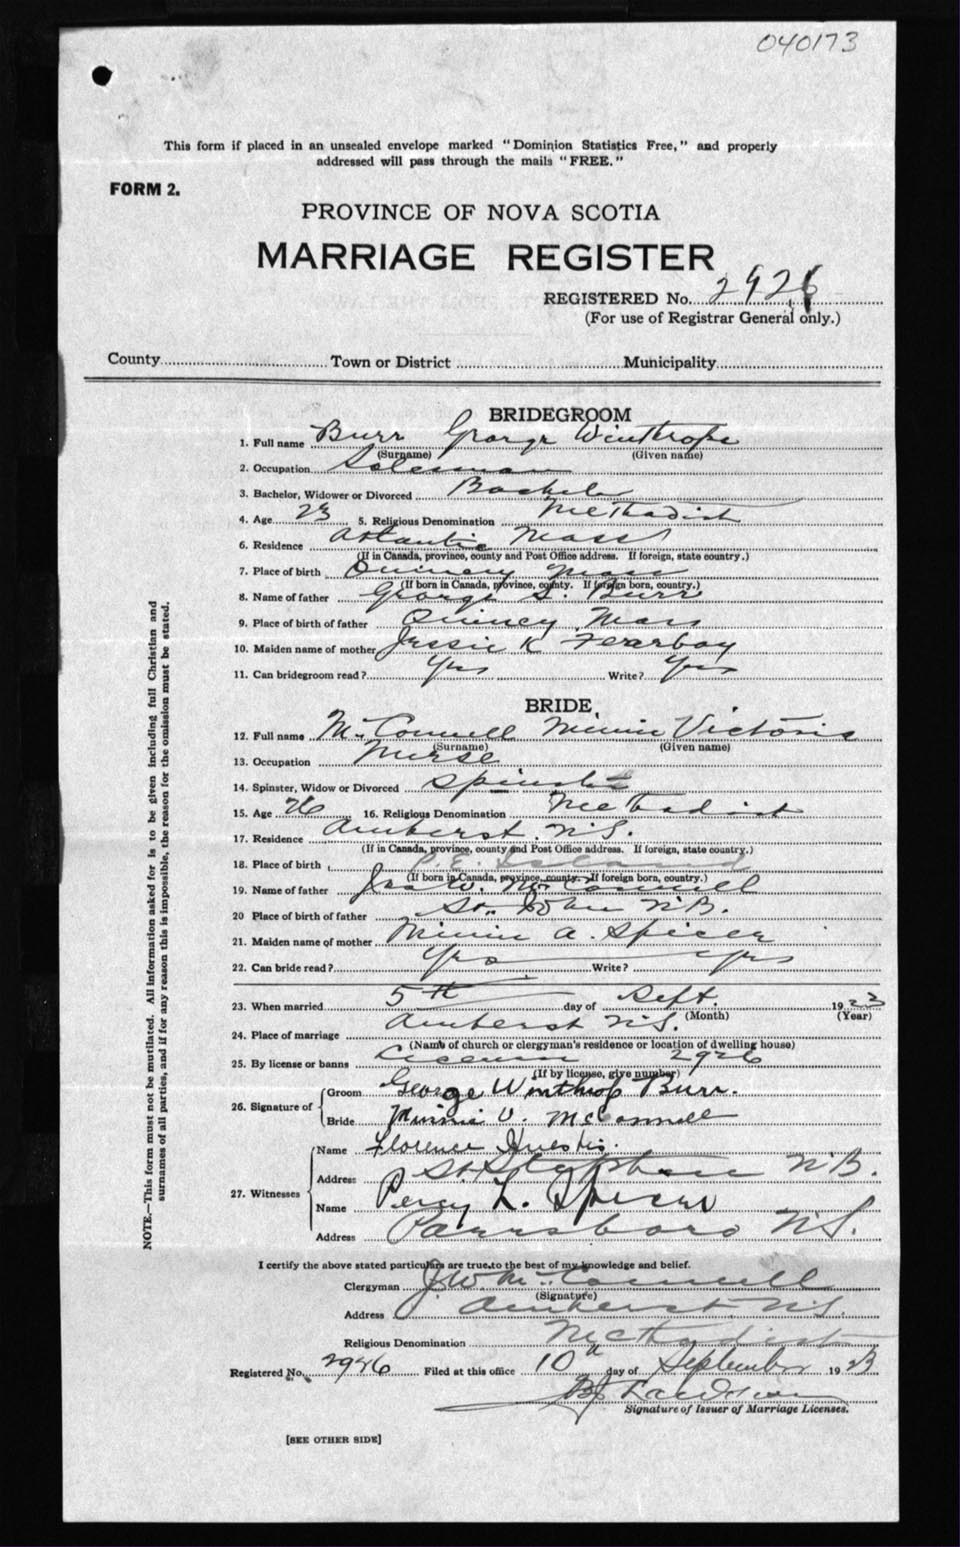 040173
This form if placed in an unsealed envelope marked "Dominion Statistics Free," and properly
addressed will pass through the mails "FREE."
FORM 2.
PROVINCE OF NOVA SCOTIA
MARRIAGE REGISTER
REGISTERED No. 2926
(For use of Registrar General only.)
County Town or District Municipality
BRIDEGROOM
1. Full name Burr George Winthrope
(Surname) (Given name)
2. Occupation Salesman
3. Bachelor, Widower or Divorced Bachelor
4. Age 23 5. Religious Denomination Methodist
6. Residence Atlantic Mass
(If in Canada, province, county and Post Office address. If foreign, state country.)
7. Place of birth Quincy Mass
(If born in Canada, province, county. If foreign born, country.)
8. Name of father George S. Burr
9. Place of birth of father Quincy Mass
10. Maiden name of mother Jessie K Fearboy
11. Can bridegroom read? Yes Write? Yes
BRIDE
12. Full name McConnell Minnie Victoria
(Surname) (Given name)
13. Occupation Nurse
14. Spinster, Widow or Divorced Spinster
15. Age 26 16. Religious Denomination Methodist
17. Residence Amherst N.S.
(If in Canada, province, county and Post Office address. If foreign, state country.)
18. Place of birth P.E. Island
(If born in Canada, province, county. If foreign born, country.)
19. Name of father Jas W. McConnell
20 Place of birth of father St. John N.B.
21. Maiden name of mother Minnie A. Spicer
22. Can bride read? Yes Write? Yes
23. When married 5th day of Sept. 1923
(Month) (Year)
24. Place of marriage Amherst N.S.
(Name of church or clergyman's residence or location of dwelling house)
25. By license or banns License 2926
(If by license, give number)
26. Signature of Groom George Winthrop Burr.
Bride Minnie V. McConnell
27. Witnesses Name Florence Huestis.
Address St. Stephen N.B.
Name Percy L. Spicer
Address Parrsboro N.S.
I certify the above stated particulars are true to the best of my knowledge and belief.
Clergyman J.W. McConnell
(Signature)
Address Amherst N.S.
Religious Denomination Methodist
Registered No. 2926 Filed at this office 10th day of September 1923
Signature of Issuer of Marriage Licenses.
[SEE OTHER SIDE]
NOTE.—This form must not be mutilated. All information asked for is to be given including full Christian and
surnames of all parties, and if for any reason this is impossible, the reason for the omission must be stated.